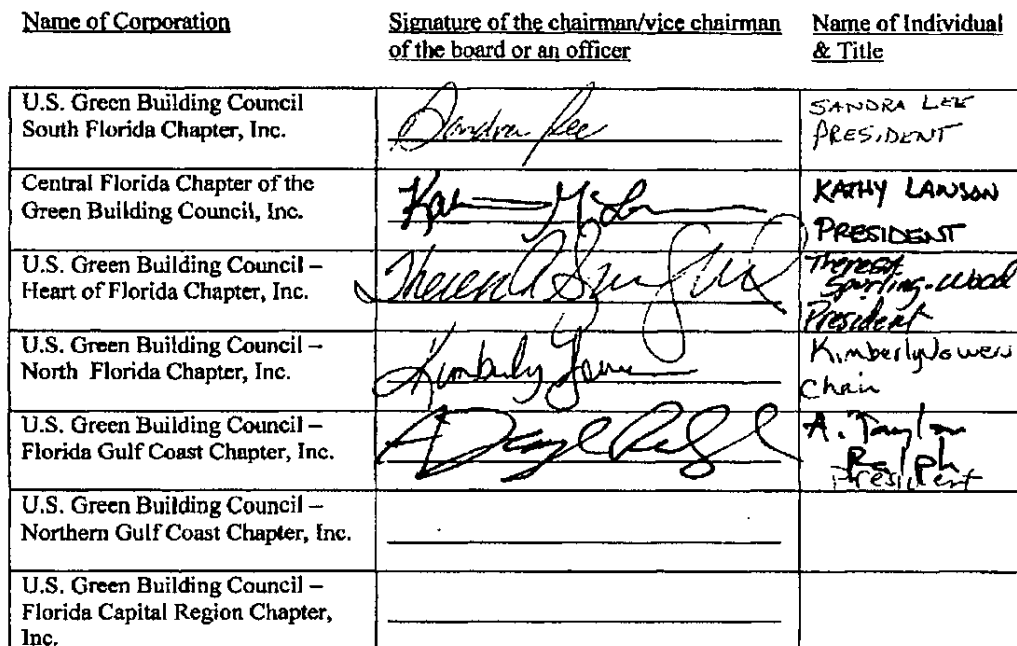 Name of Corporation
Signature of the chairman/vice chairman
of the board or an officer
Name of Individual
& Title
U.S. Green Building Council
South Florida Chapter, Inc.
Sandra Lee
SANDRA LEE
PRESIDENT
Central Florida Chapter of the
Green Building Council, Inc.
KATHY LAWSON
PRESIDENT
U.S. Green Building Council –
Heart of Florida Chapter, Inc.
Theresa
Spurling-Wood
President
U.S. Green Building Council –
North Florida Chapter, Inc.
Kimberly
Kimberly
Chair
U.S. Green Building Council –
Florida Gulf Coast Chapter, Inc.
A. Taylor
Ralph
President
U.S. Green Building Council –
Northern Gulf Coast Chapter, Inc.
U.S. Green Building Council –
Florida Capital Region Chapter,
Inc.